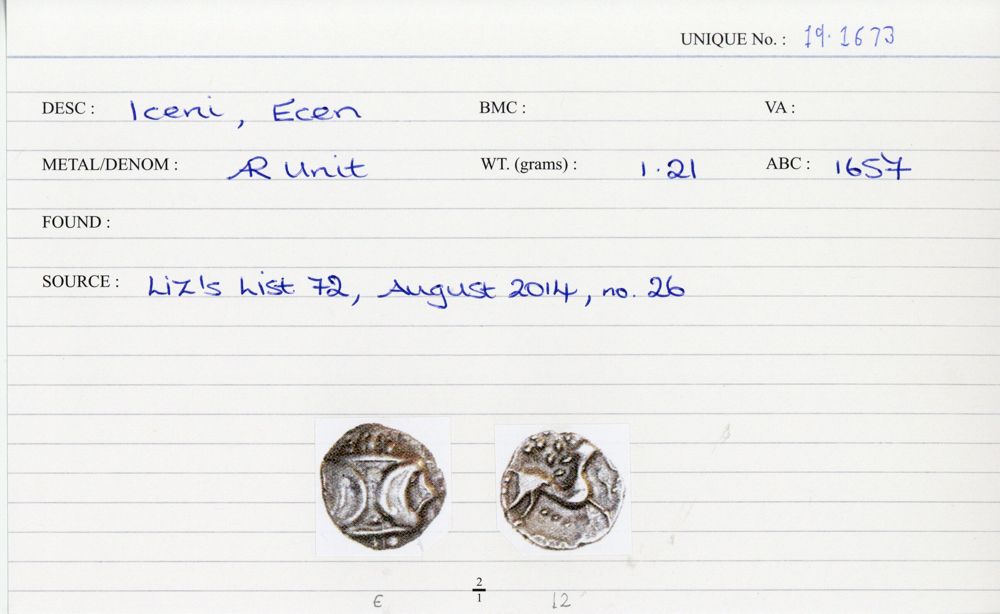 UNIQUE No. : 19.1673
DESC : Iceni, Ecen BMC : VA :
METAL/DENOM : AR Unit WT. (grams) : 1.21 ABC : 1657
FOUND :
SOURCE : Liz's List 72, August 2014, no. 26
2
1
€ 12